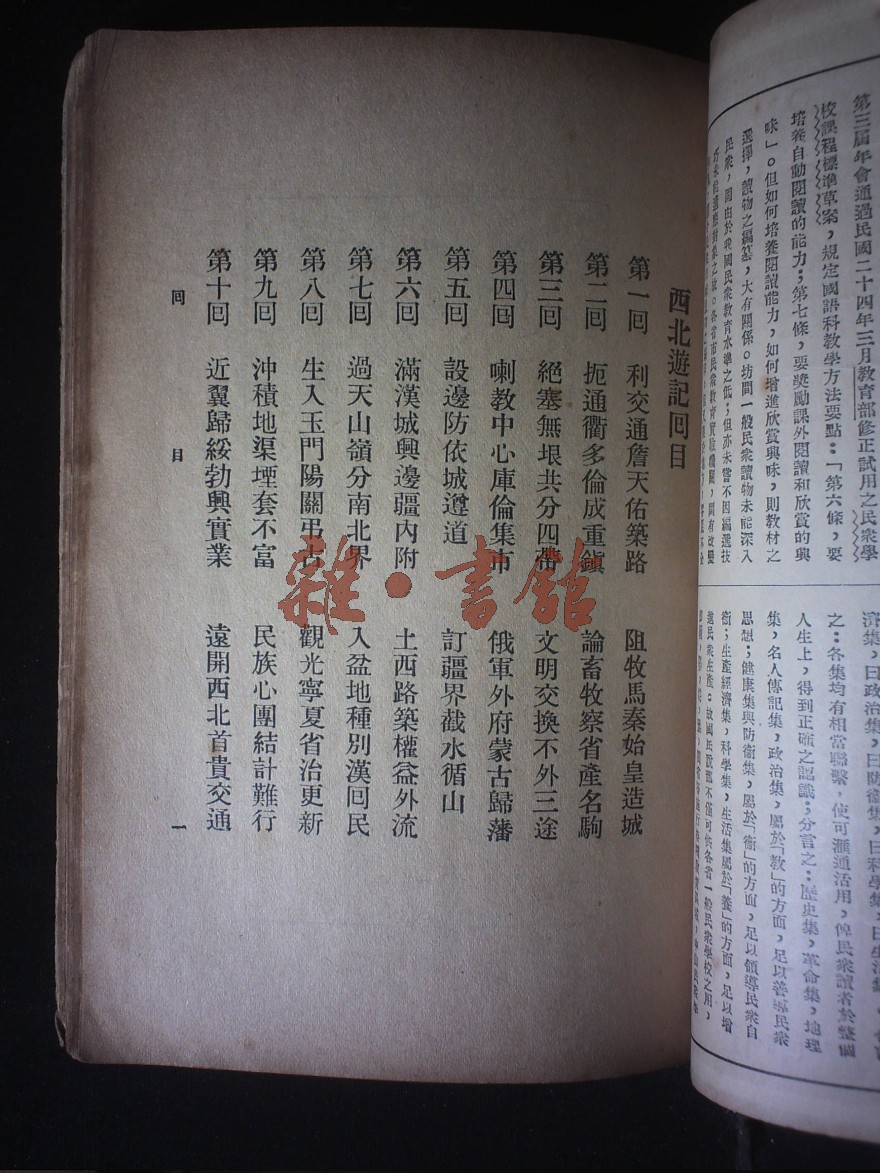 第三屆年會通過民國二十四年三月教育部修正試用之民衆學
校課程標準草案，規定國語科教學方法要點：「第六條，要
培養自動閱讀的能力；第七條，要獎勵課外閱讀和欣賞的興
味」。但如何培養閱讀能力，如何增進欣賞興味，則教材之
選擇，讀物之編纂，大有關係。坊間一般民衆讀物未能深入
民衆，固由於我國民衆教育水準之低；但亦未嘗不因編選技
濟集，曰政治集，曰防衛集，曰科學集，曰生活集，
之：各集均有相當聯繫，使可滙通活用，俾民衆讀者於整個
人生上，得到正確之認識；分言之：歷史集，革命集，地理
集，名人傳記集，政治集，屬於「教」的方面，足以善導民衆
思想；健康集與防衛集，屬於「衛」的方面，足以領導民衆自
衛；生產經濟集，科學集，生活集屬於「養」的方面，足以增
進民衆生產。
西北遊記囘目
第一囘 利交通詹天佑築路 阻牧馬秦始皇造城
第二囘 扼通衢多倫成重鎭 論畜牧察省產名駒
第三囘 絕塞無垠共分四帶 文明交換不外三途
第四囘 喇教中心庫倫集市 俄軍外府蒙古歸藩
第五囘 設邊防依城遵道 訂疆界截水循山
第六囘 滿漢城興邊疆內附 土西路築權益外流
第七囘 過天山嶺分南北界 入盆地種別漢囘民
第八囘 生入玉門陽關弔古 觀光寧夏省治更新
第九囘 沖積地渠堙套不富 民族心團結計難行
第十囘 近翼歸綏勃興實業 遠開西北首貴交通
囘目 一
雜·書館